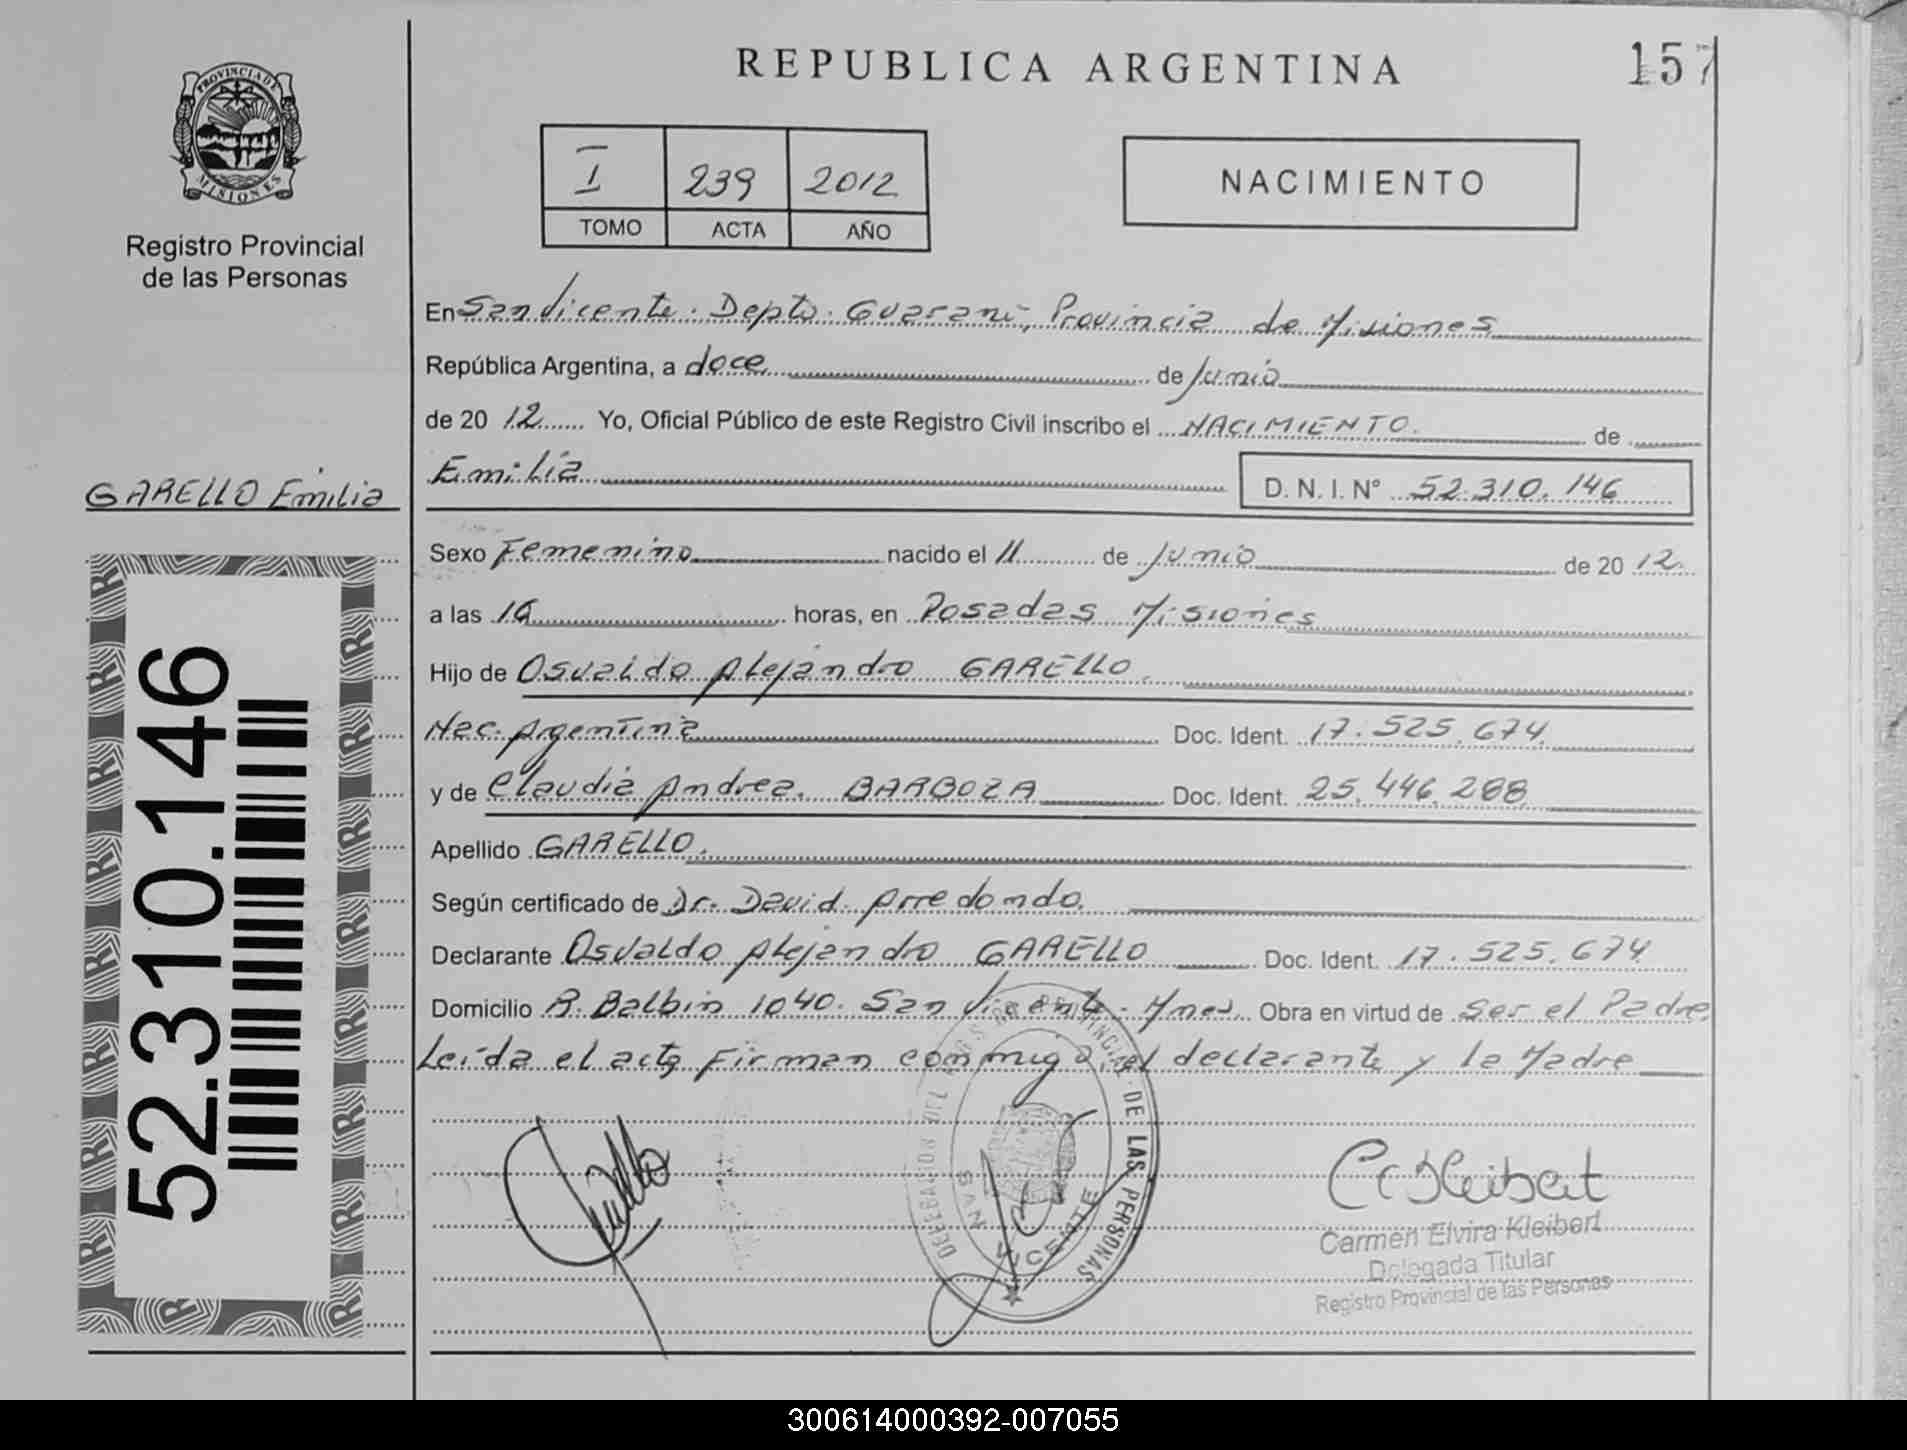 REPUBLICA ARGENTINA
157
PROVINCIA DE
MISIONES
Registro Provincial
de las Personas
I 239 2012
TOMO ACTA AÑO
NACIMIENTO
En San Vicente. Depto. Guaraní, Provincia de Misiones
República Argentina, a doce de Junio
de 20 12 Yo, Oficial Público de este Registro Civil inscribo el NACIMIENTO. de
Emilia D. N. I. Nº 52.310.146
GARELLO Emilia
Sexo Femenino nacido el 11 de Junio de 20 12
a las 16 horas, en Posadas Misiones
Hijo de Osvaldo Alejandro GARELLO.
Nac. Argentina Doc. Ident. 17.525.674
y de Claudia Andrea. BARBOZA Doc. Ident. 25.446.288
Apellido GARELLO.
Según certificado de Dr. David Arredondo.
Declarante Osvaldo Alejandro GARELLO Doc. Ident. 17.525.674
Domicilio R. Balbin 1040. San Vicente - Mnes. Obra en virtud de Ser el Padre
Leída el acta Firman conmigo, el declarante y la Madre
52.310.146
DELEGACION DEL REGISTRO PROVINCIAL DE LAS PERSONAS
SAN VICENTE
C E Kleibert
Carmen Elvira Kleibert
Delegada Titular
Registro Provincial de las Personas
300614000392-007055